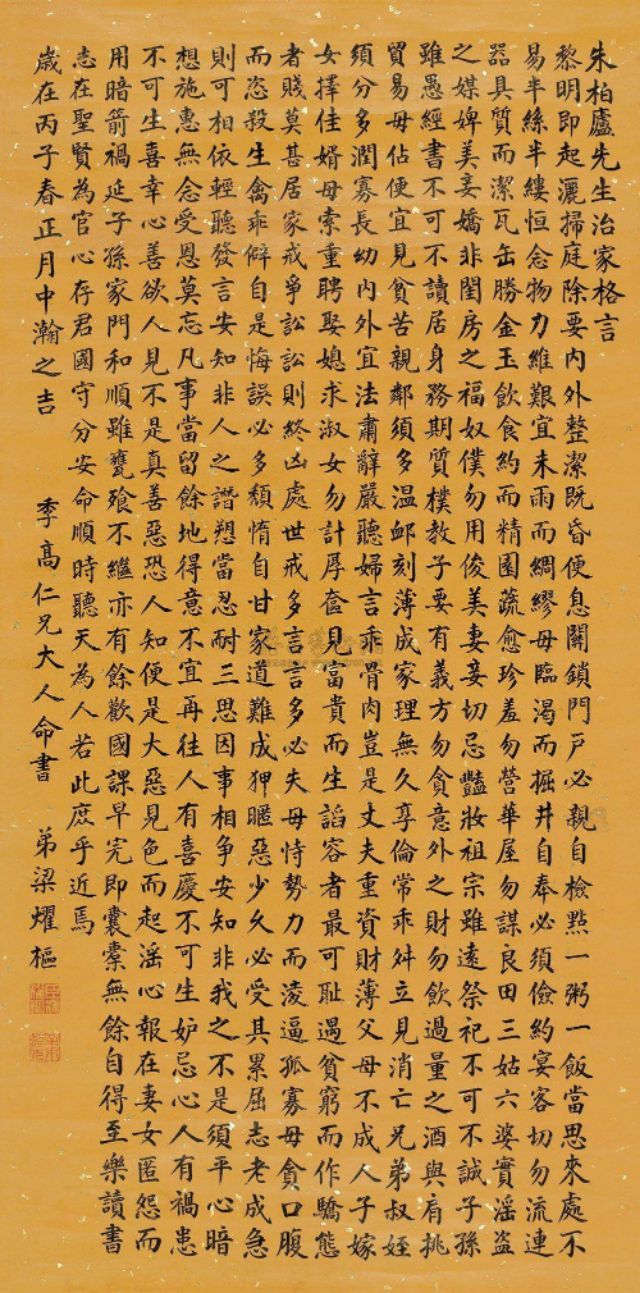 朱柏廬先生治家格言
黎明即起灑掃庭除要內外整潔既昏便息關鎖門戶必親自檢點一粥一飯當思來處不
易半絲半縷恒念物力維艱宜未雨而綢繆毋臨渴而掘井自奉必須儉約宴客切勿流連
器具質而潔瓦缶勝金玉飲食約而精園蔬愈珍羞勿營華屋勿謀良田三姑六婆實滛盜
之媒婢美妾嬌非閨房之福奴僕勿用俊美妻妾切忌豔妝祖宗雖遠祭祀不可不誠子孫
雖愚經書不可不讀居身務期質樸教子要有義方勿貪意外之財勿飲過量之酒與肩挑
貿易毋佔便宜見貧苦親鄰須多温卹刻薄成家理無久享倫常乖舛立見消亡兄弟叔姪
須分多潤寡長幼內外宜法肅辭嚴聽婦言乖骨肉豈是丈夫重資財薄父母不成人子嫁
女擇佳婿毋索重聘娶媳求淑女勿計厚奩見富貴而生諂容者最可恥遇貧窮而作驕態
者賤莫甚居家戒爭訟訟則終凶處世戒多言言多必失毋恃勢力而淩逼孤寡毋貪口腹
而恣殺生禽乖僻自是悔誤必多頹惰自甘家道難成狎暱惡少久必受其累屈志老成急
則可相依輕聽發言安知非人之譖愬當忍耐三思因事相爭安知非我之不是須平心暗
想施惠無念受恩莫忘凡事當留餘地得意不宜再往人有喜慶不可生妒忌心人有禍患
不可生喜幸心善欲人見不是真善惡恐人知便是大惡見色而起滛心報在妻女匿怨而
用暗箭禍延子孫家門和順雖饔飧不繼亦有餘歡國課早完即囊橐無餘自得至樂讀書
志在聖賢為官心存君國守分安命順時聽天為人若此庶乎近焉
歲在丙子春正月中澣之吉 季高仁兄大人命書 弟梁燿樞